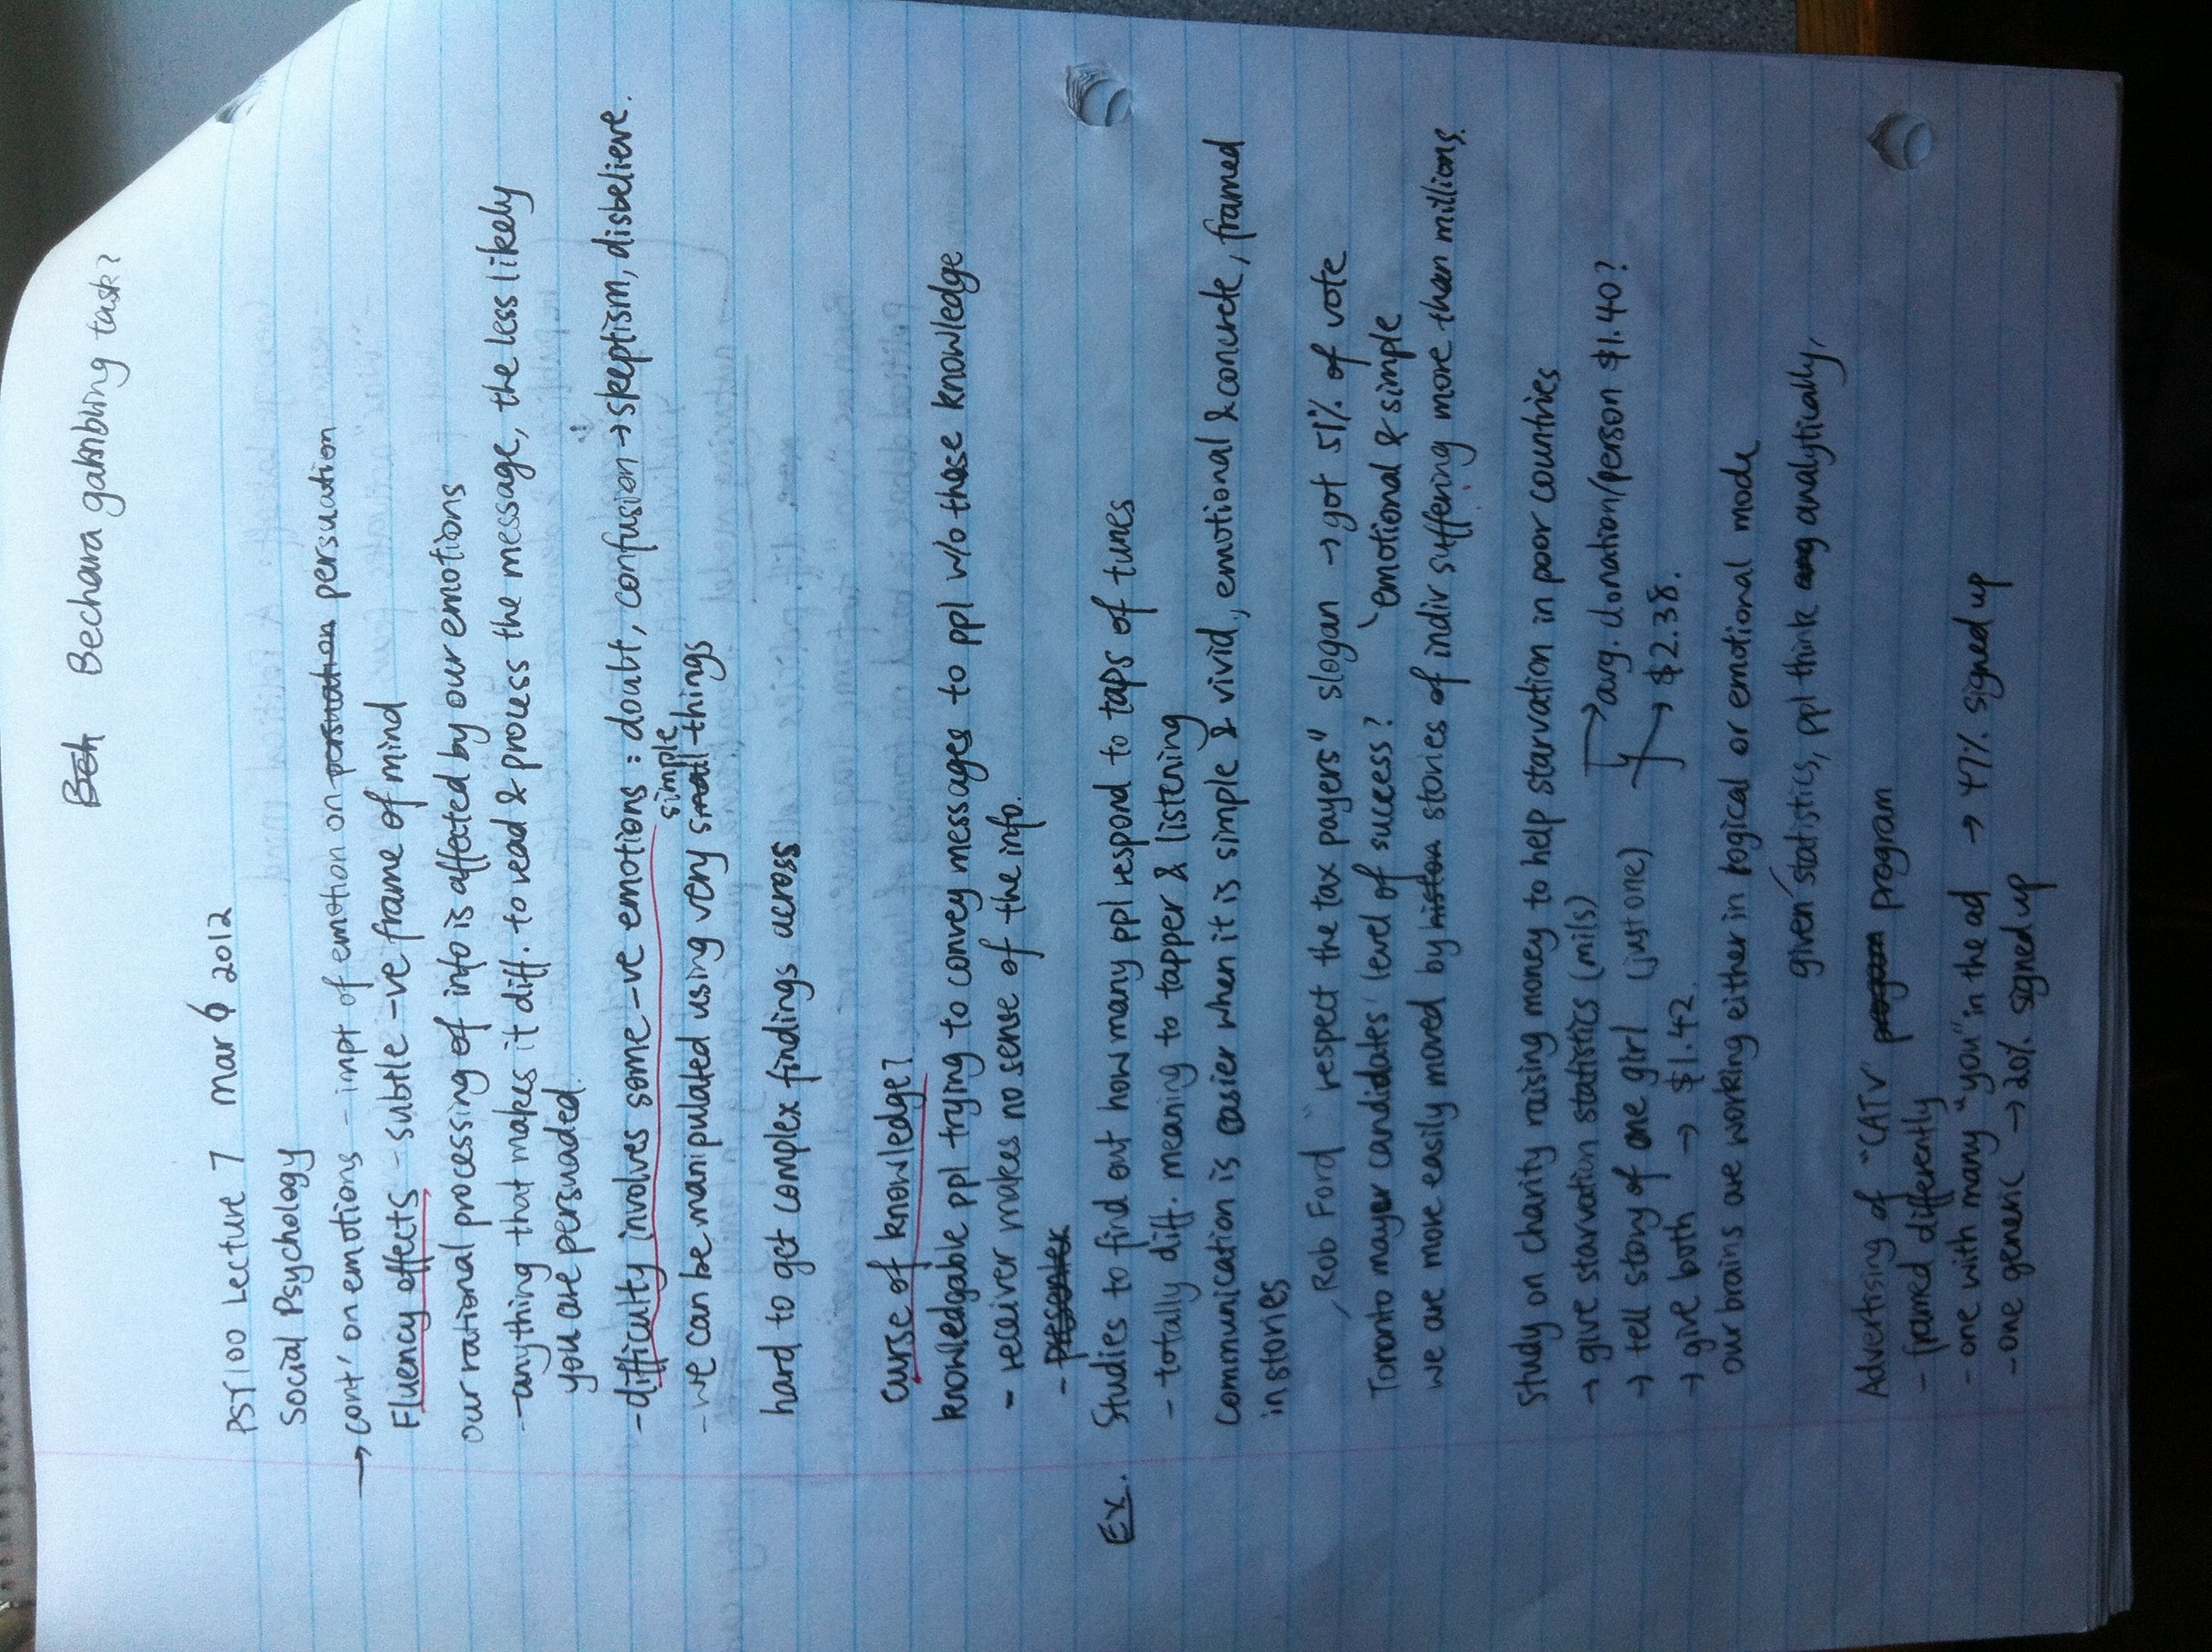 Bech Bechara gakmbling task?
PSY100 Lecture 7 Mar 6 2012
Social Psychology
→ cont' on emotions - impt of emotion on persuation persuation
Fluency effects - subtle -ve frame of mind
our rational processing of info is affected by our emotions
- anything that makes it diff. to read & process the message, the less likely
you are persuaded.
- difficulty involves some -ve emotions : doubt, confusion → skeptism, disbelieve.
simple
- we can be manipulated using very small things
hard to get complex findings across
curse of knowledge?
knowledgable ppl trying to convey messages to ppl w/o these knowledge
- receiver makes no sense of the info.
-
Ex. Studies to find out how many ppl respond to taps of tunes
- totally diff. meaning to tapper & listening
communication is easier when it is simple & vivid, emotional & concrete, framed
in stories
Rob Ford "respect the tax payers" slogan → got 51% of vote
Toronto mayor candidates' level of success? emotional & simple
we are more easily moved by stories of indiv suffering more than millions.
Study on charity raising money to help starvation in poor countries
→ give starvation statistics (mils) → avg. donation/person $1.40?
→ tell story of one girl (just one) → $2.38.
→ give both → $1.42.
our brains are working either in logical or emotional mode
given statistics, ppl think ang analytically,
Advertising of "CATV" program program
- framed differently
- one with many "you" in the ad → 47% signed up
- one generic → 20% signed up